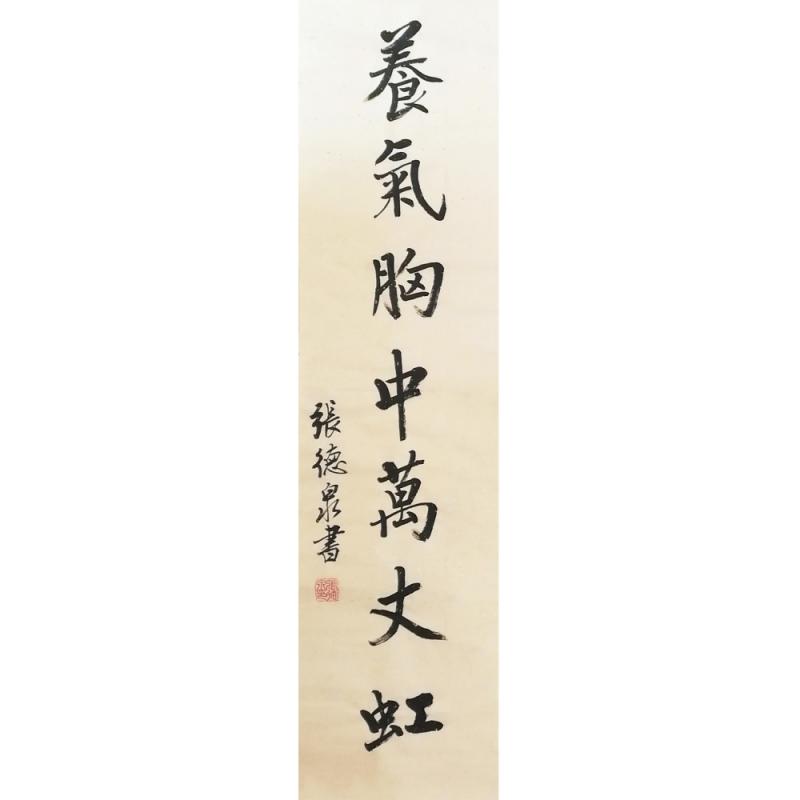 養氣胸中萬丈虹
張德泉書